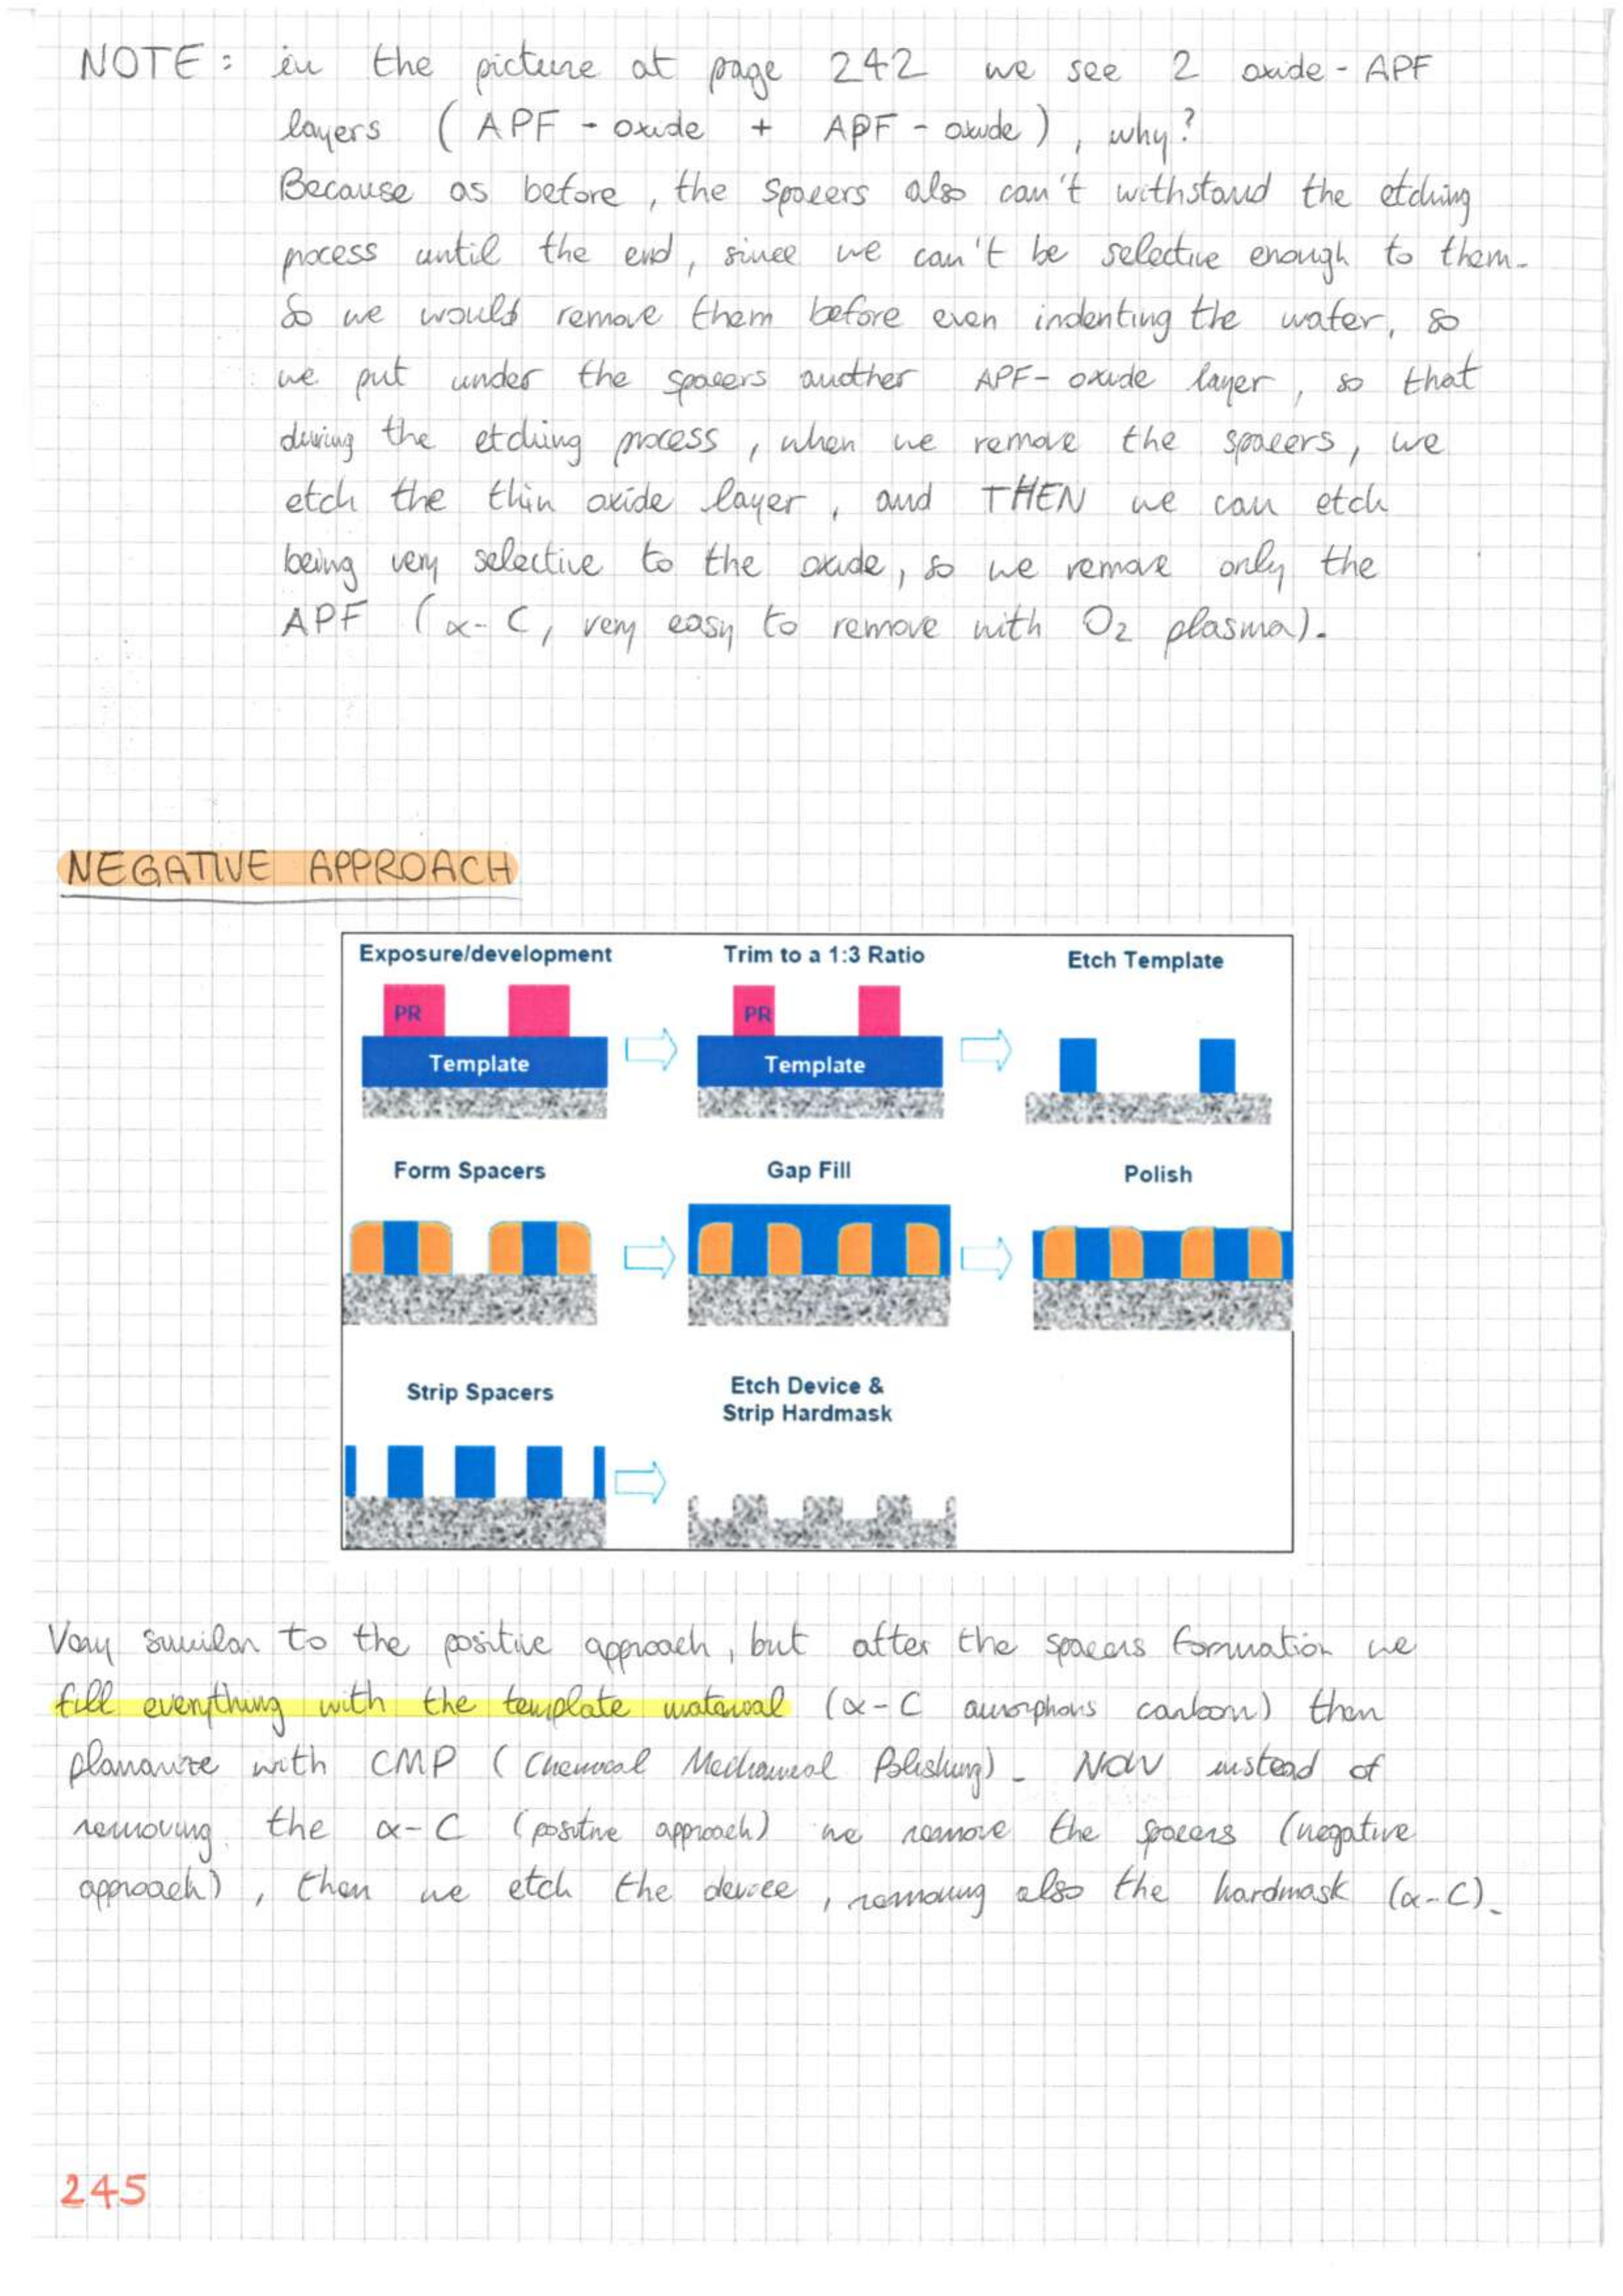 NOTE: in the picture at page 242 we see 2 oxide-APF
layers (APF-oxide + APF-oxide), why?
Because as before, the spacers also can't withstand the etching
process until the end, since we can't be selective enough to them.
So we would remove them before even indenting the wafer, so
we put under the spacers another APF-oxide layer, so that
during the etching process, when we remove the spacers, we
etch the thin oxide layer, and THEN we can etch
being very selective to the oxide, so we remove only the
APF (α-C, very easy to remove with O2 plasma).
NEGATIVE APPROACH
Exposure/development Trim to a 1:3 Ratio Etch Template
PR PR
Template Template
Form Spacers Gap Fill Polish
Strip Spacers Etch Device &
Strip Hardmask
Very similar to the positive approach, but after the spacers formation we
fill everything with the template material (α-C amorphous carbon) then
planarize with CMP (Chemical Mechanical Polishing). NOW instead of
removing the α-C (positive approach) we remove the spacers (negative
approach), then we etch the device, removing also the hardmask (α-C).
245